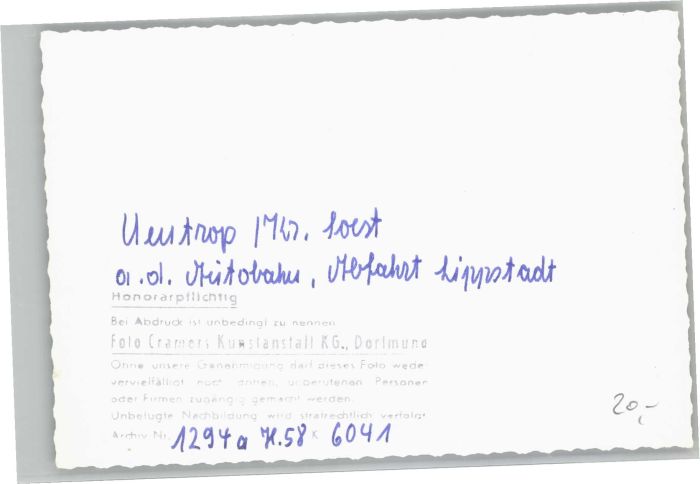 Uentrop / Kr. Soest
a.d. Autobahn, Abfahrt Lippstadt
Honorarpflichtig
Bei Abdruck ist unbedingt zu nennen
Foto Cramers Kunstanstalt KG., Dortmund
Ohne unsere Genehmigung darf dieses Foto weder
vervielfältigt noch dritten, unberufenen Personen
oder Firmen zugängig gemacht werden.
Unbefugte Nachbildung wird strafrechtlich verfolgt
Archiv-Nr. 1294a K.58 K 6041
20,-